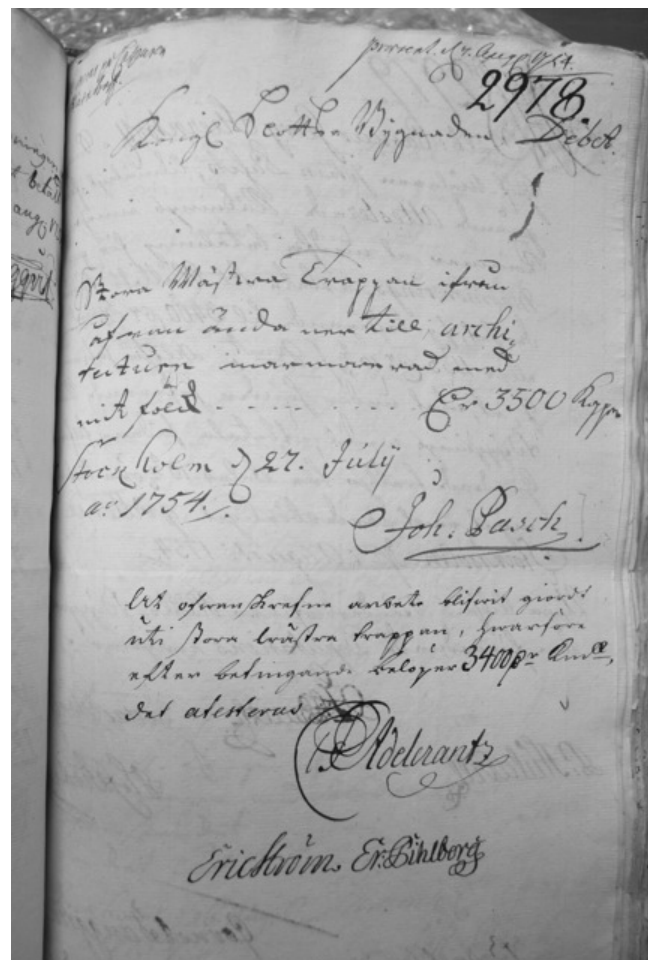 præsent. d. 7. Aug. 1754.
2978.
Kongl. Slotts Bygnaden Debet.
Stora Wästra Trappan ifrån
ofwan ända ner till archi,
tecturen marmorerad med
mit folck - - - - - - - Er 3500 Kppr
Stockholm d 27. Julÿ
ao 1754.
Joh. Pasch
Att ofwanskrefne arbete blifwit giordt
uti stora wästra trappan, hwarföre
efter betingande belöper 3400 dr Kmt,
det atesteras
Adelcrantz
Eric Ström. Er. Pihlborg